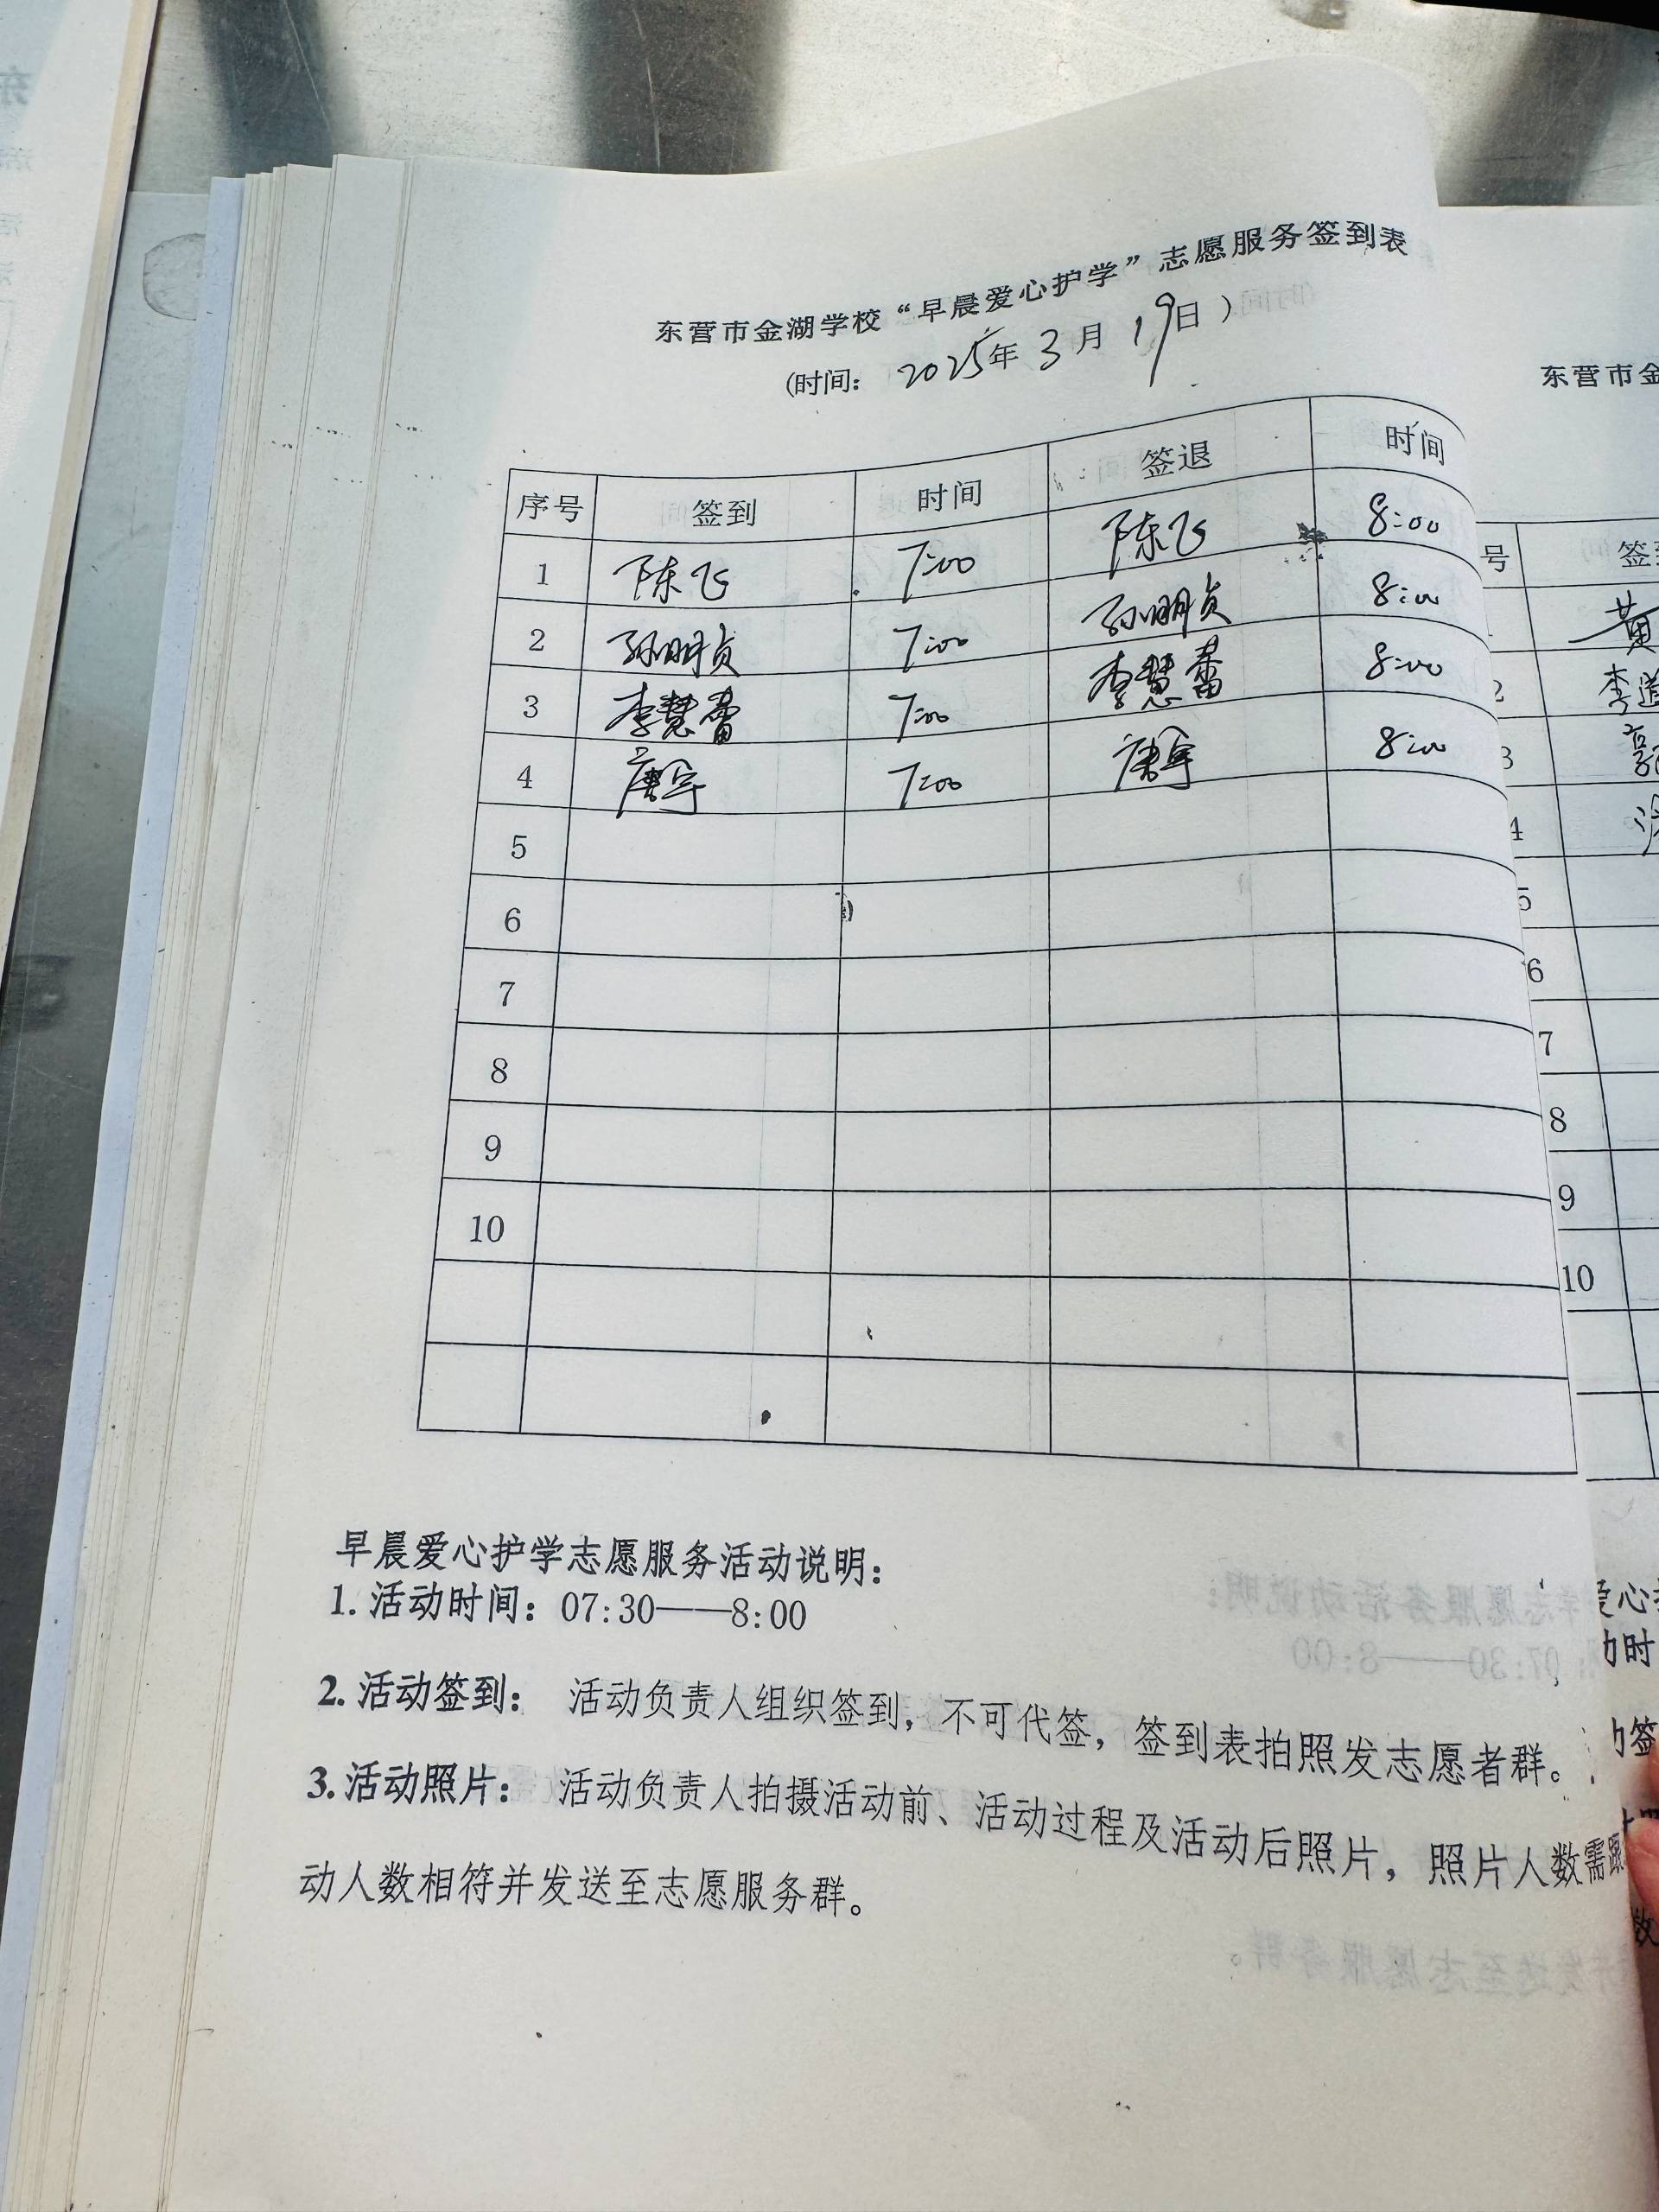 东营市金湖学校“早晨爱心护学”志愿服务签到表
(时间: 2025年 3月 19日)
序号 签到 时间 签退 时间
1 陈飞 7:00 陈飞 8:00
2 孙明贞 7:00 孙明贞 8:00
3 李慧蕾 7:00 李慧蕾 8:00
4 唐宇 7:00 唐宇 8:00
5
6
7
8
9
10
早晨爱心护学志愿服务活动说明:
1. 活动时间: 07:30——8:00
2. 活动签到: 活动负责人组织签到，不可代签，签到表拍照发志愿者群。
3. 活动照片: 活动负责人拍摄活动前、活动过程及活动后照片，照片人数需跟
动人数相符并发送至志愿服务群。
东营市金
号 签到
黄
2 李道
3 郭
4
5
6
7
8
9
10
爱心
动时
动签
数